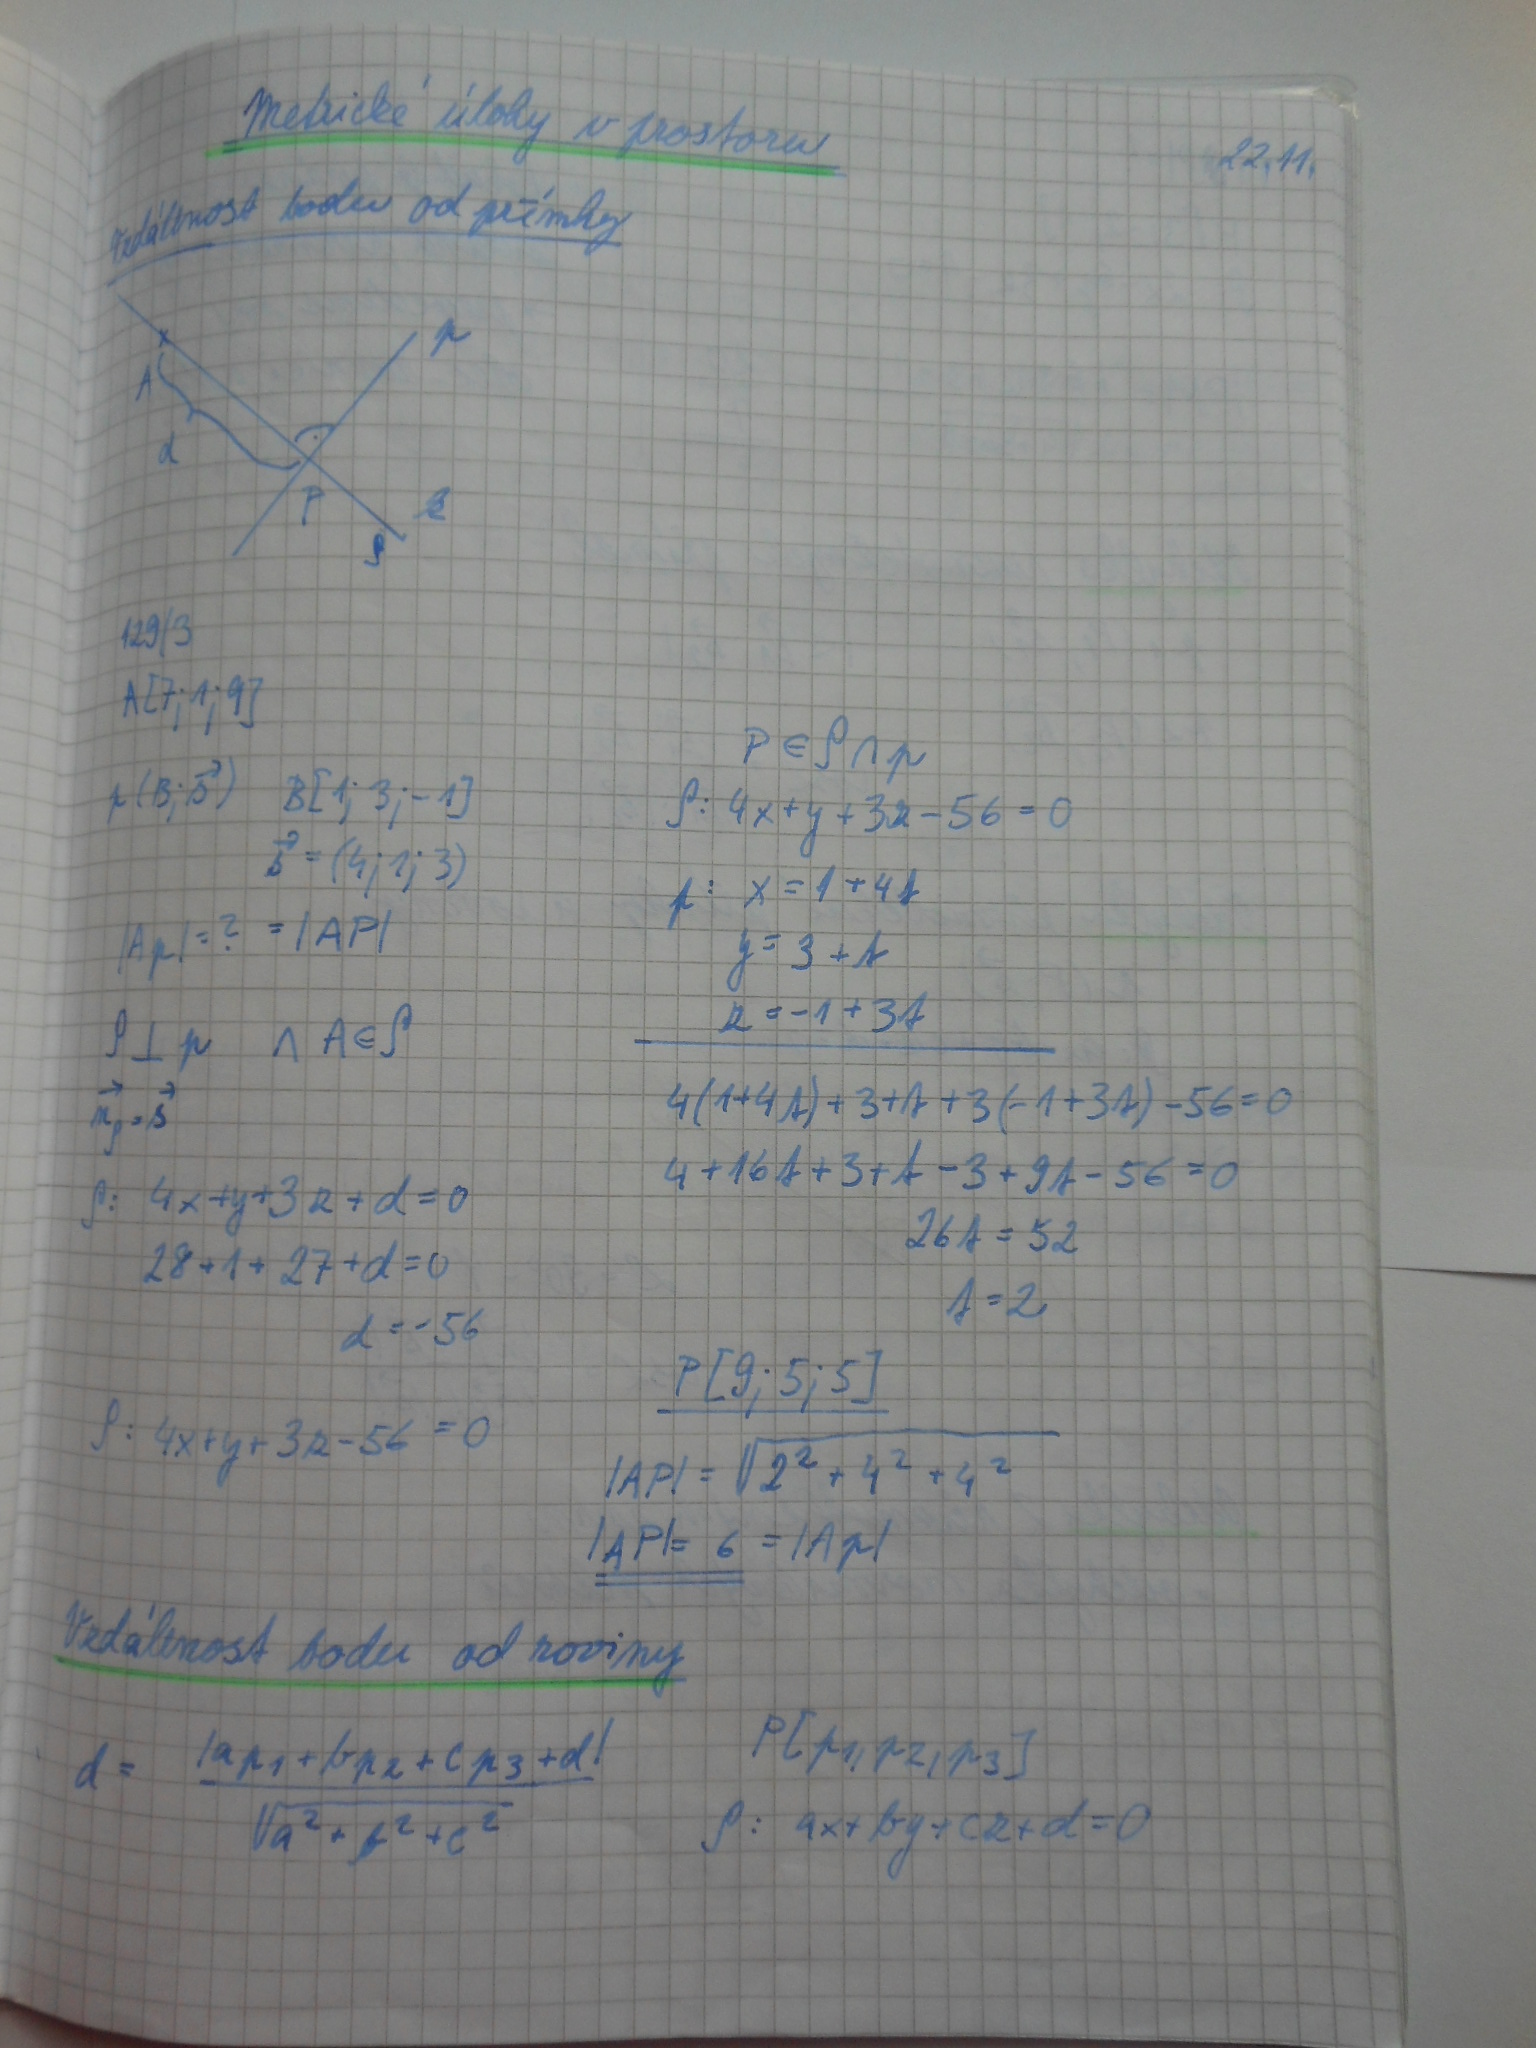 Metrické úlohy v prostoru
22.11.
Vzdálenost bodu od přímky
p
A
d
P
ρ
129/3
A[7;1;9]
p(B;s⃗) B[1;3;-1]
s⃗ = (4;1;3)
|Ap| = ? = |AP|
ρ ⊥ p ∧ A ∈ ρ
n⃗ρ = s⃗
ρ: 4x+y+3z+d=0
28+1+27+d=0
d=-56
ρ: 4x+y+3z-56=0
P ∈ ρ ∩ p
ρ: 4x+y+3z-56=0
p: x=1+4t
y=3+t
z=-1+3t
4(1+4t)+3+t+3(-1+3t)-56=0
4+16t+3+t-3+9t-56=0
26t=52
t=2
P[9;5;5]
|AP| = √2²+4²+4²
|AP|= 6 = |Ap|
Vzdálenost bodu od roviny
d = |ap₁+bp₂+cp₃+d|
√a²+b²+c²
P[p₁,p₂,p₃]
ρ: ax+by+cz+d=0